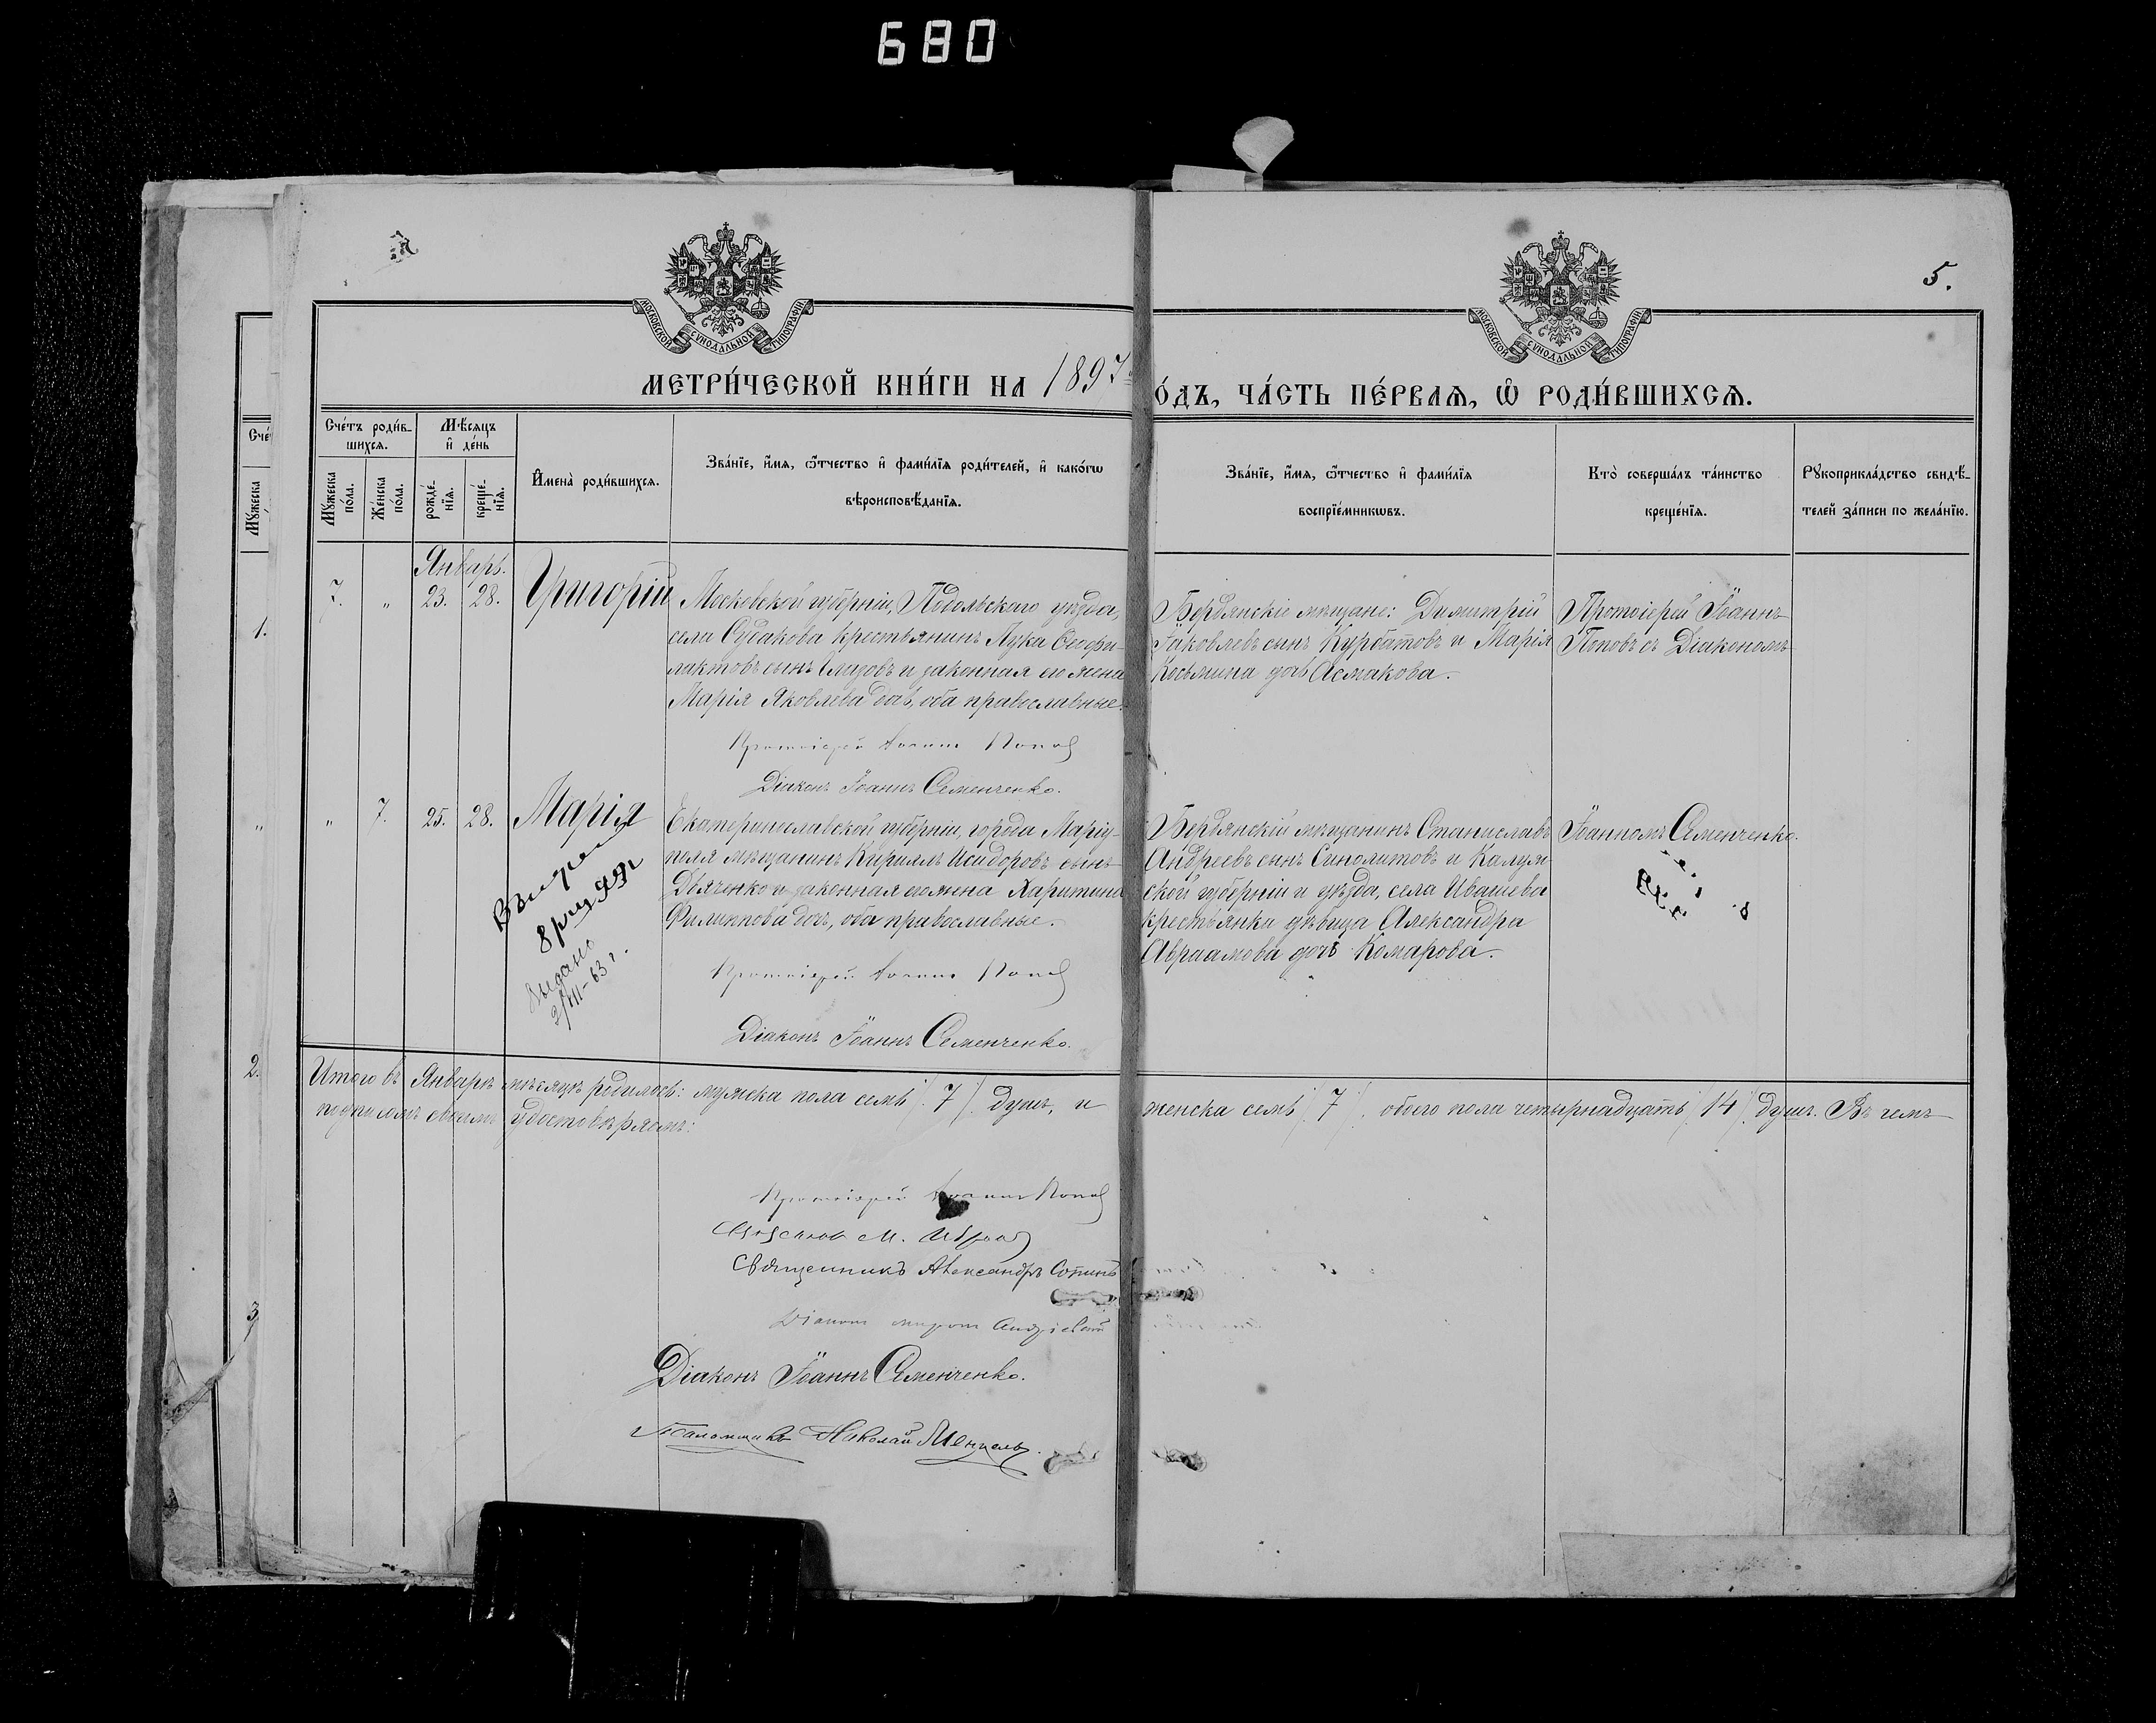 680
5.
МОСКОВСКОЙ СѴНОДАЛЬНОЙ ТИПОГРАФІИ
МОСКОВСКОЙ СѴНОДАЛЬНОЙ ТИПОГРАФІИ
МЕТРИ́ЧЕСКОЙ КНИ́ГИ НА 1897 ГО́ДЪ, ЧА́СТЬ ПЕ́РВАѦ, Ѡ РОДИ́ВШИХСѦ.
Сче́тъ роди́в-
шихсѧ.
Мꙋжеска по́ла.
Же́нска по́ла.
Мѣ́сѧцъ
и҆ де́нь
рожде́-
нїѧ.
креще́-
нїѧ.
И҆мена̀ роди́вшихсѧ.
Зва́нїе, и҆́мѧ, ѻ҆́тчество и҆ фами́лїѧ роди́телей, и҆ како́гѡ
вѣроисповѣ́данїѧ.
Зва́нїе, и҆́мѧ, ѻ҆́тчество и҆ фами́лїѧ
воспрїе́мникѡвъ.
Кто̀ соверша́лъ та́инство
креще́нїѧ.
Рꙋкоприкла́дство свидѣ́-
телей за́писи по жела́нїю.
Январь.
7. „ 23. 28. Григорій
Московской губерніи, Подольскаго уѣзда,
села Судакова крестьянинъ Лука Ѳеофи-
лактовъ сынъ и законная его жена
Марія Яковлева дочь, оба православные.
Протоіерей Іоаннъ Поповъ
Діаконъ Іоаннъ Семенченко.
Бердянскіе мѣщане: Димитрій
Іаковлевъ сынъ Курбатовъ и Марія
Косьмина дочь Асмакова.
Протоіерей Іоаннъ
Поповъ съ Діакономъ
„ 7. 25. 28. Марія
Екатеринославской губерніи, города Маріу-
поля мѣщанинъ Кириллъ Исидоровъ сынъ
Дьяченко и законная его жена Харитина
Филиппова дочь, оба православные.
Протоіерей Іоаннъ Поповъ
Діаконъ Іоаннъ Семенченко.
Бердянскій мѣщанинъ Станиславъ
Андреевъ сынъ Синолитовъ и Калуж-
ской губерніи и уѣзда, села Ивашева
крестьянка дѣвица Александра
Авраамова дочь Комарова.
Іоанномъ Семенченко.
выдано
2/VII-63 г.
Итого въ Январѣ мѣсяцѣ родилось: мужеска пола семь /7/ душъ, и женска семь /7/. обоего пола четырнадцать /14/ душъ. Въ чемъ
подписомъ своимъ удостовѣряемъ:
Протоіерей Іоаннъ Поповъ
Священникъ Александръ Сопинъ
Діаконъ
Діаконъ Іоаннъ Семенченко.
Псаломщикъ Николай Менцель.
1.
„
2.
3